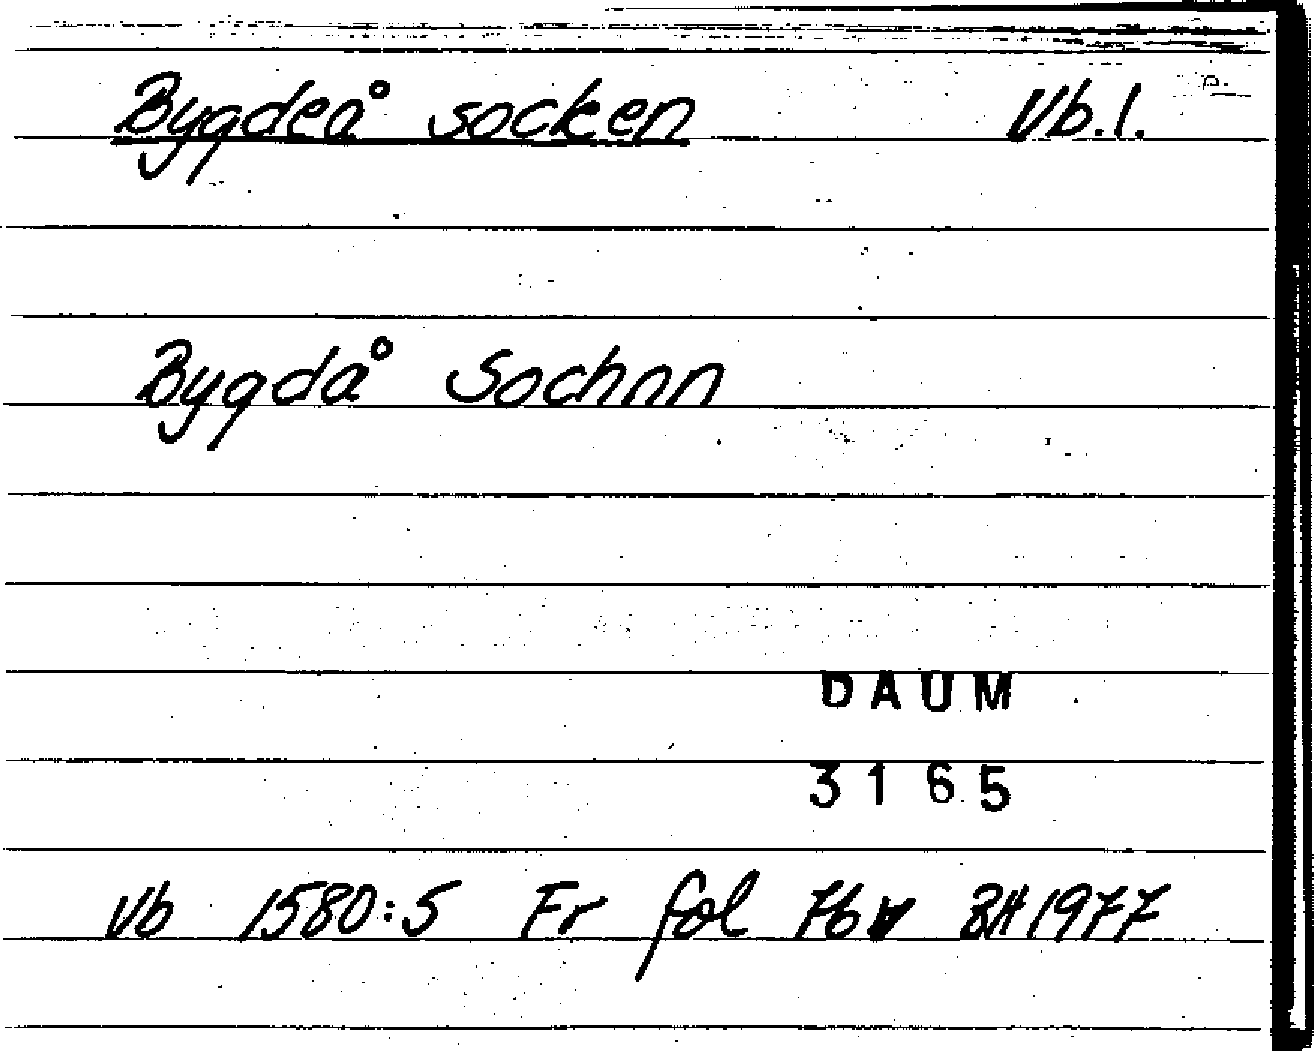 Bygdeå socken Vb.l.
Bygdå Sochnn
DAUM
3165
Vb 1580:5 Fr fol 76v BH 1977